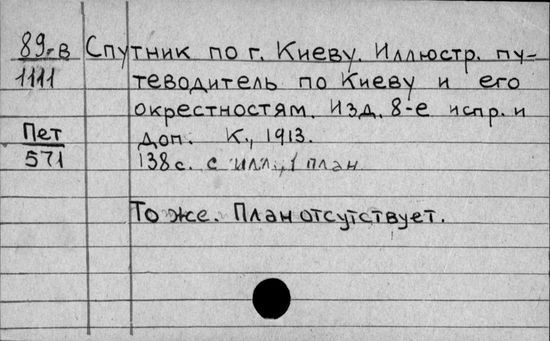 89-в Спутник по г. Киеву. Иллюстр. пу-
1111 теводитель по Киеву и его
окрестностям. Изд. 8-е испр. и
Пет доп. К., 1913.
571 138 с. с илл., 1 план
То же. План отсутствует.